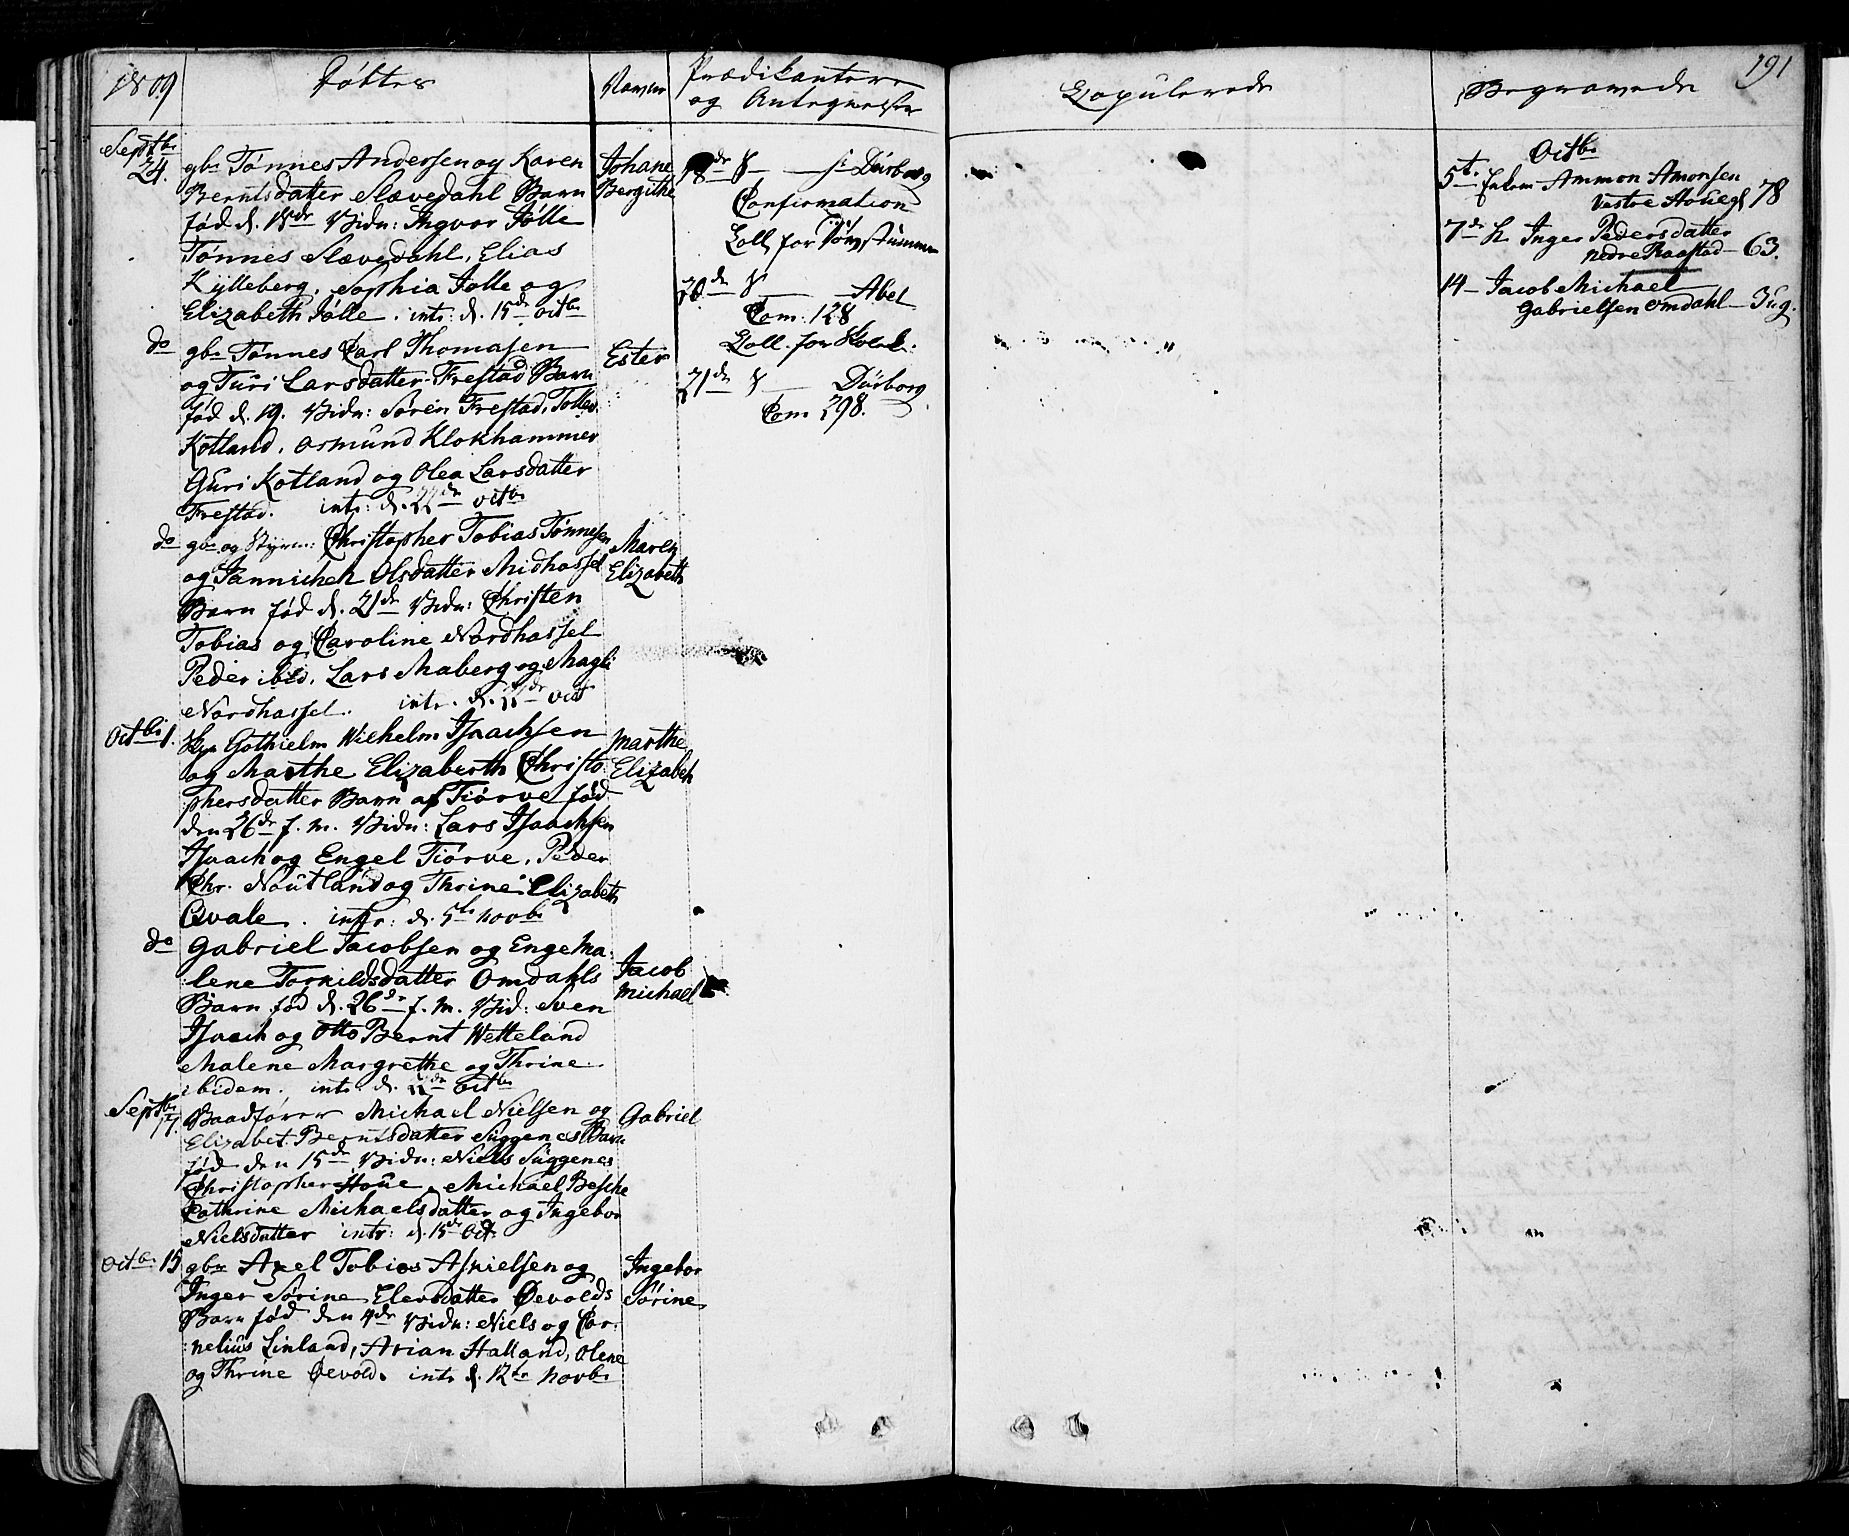 1809
Døbte
Navne
Prædikantere
og Antegnelser
Copulerede
Begravede
191
Septbr
24.
gbr Tønnes Andersen og Karen
Berntsdatter Slævedahl Barn
fød d. 18de Vidn: Ingvor Jølle
Tønnes Slævedahl, Elias
Kylleberg, Sophia Jølle og
Elizabeth Jølle. intr: d. 15de octbr
Johane
Bergithe
do
gbr Tønnes Carl Thomasen
og Turi Larsdatter Frestad Barn
fød d. 19. Vidn: Søren Frestad, Tolles
Kotland, Osmund Klokhammer
Guri Kotland og Olea Larsdatter
Frestad. intr: d. 22de octbr
Ester
do
gbr og Styrm: Christopher Tobias Tønnesen
og Jannicheh Olsdatter Midhassel
Barn fød d. 21de Vidn: Christen
Tobias og Caroline Nordhassel
Peder ibid, Lars Maberg og Magli
Nordhassel. intr. d. oct
Maren
Elizabeth
Octbr 1.
Gothielm Wilhelm Isaachsen
og Marthe Elizaberth Christo
phersdatter Barn af Tiørve fød
den 26de f. m. Vidn: Lars Isaachsen
Isaach og Engel Tiørve, Peder
Chr. Noutland og Thrine Elizabeth
Qvale. intr: d. 5te novbr
Marthe
Elizabeh
do
Gabriel Jacobsen og Enge Ma:
lene Torkildsdatter Omdahls
Barn fød d. 26de f. m. Vid: Sven
Isaach og Otto Bernt Wetteland
Malene Margrethe og Thrine
ibidem. intr. d. octbr
Jacob
Michael
Septbr
17.
Baadfører Michael Nielsen og
Elizabet Berntsdatter Suggenes Barn
fød den 15de Vidn: Niels Suggenes
Christopher Houe, Michael Besche
Cathrine Michaelsdatter og Ingebor
Nielsdatter intr: d. 15de Oct
Gabriel
Octbr 15
gbr Axel Tobias Asnielsen og
Inger Sørine Elersdatter Øevolds
Barn fød den 4de Vidn: Niels og Cor:
nelius Linland, Arian Halland, Olene
og Thrine Øevold. intr d. 12te novbr
Ingebor
Sørine
18de S Dürborg
Confirmation
Coll for Døvstumme
20de S Abel
Com: 128
Coll. for
21de S Dürborg
Com 298.
Octbr
5te Enkem Ammon Amonsen
Vestre Houe 78
7de Inger Pedersdatter
nedre Raastad 63.
14 Jacob Michael
Gabrielsen Omdahl 3 ug.